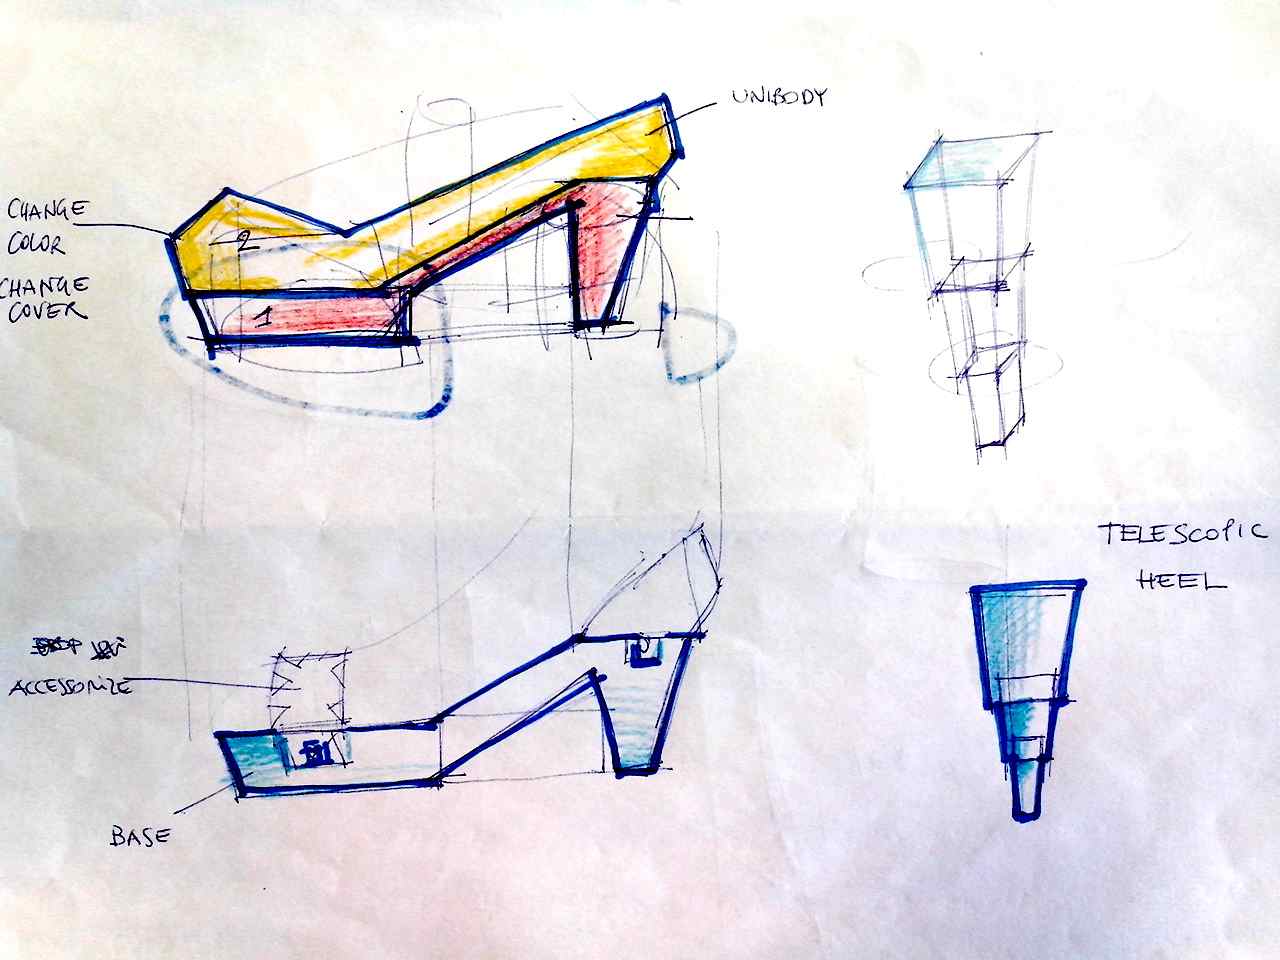 UNIBODY
CHANGE
COLOR
CHANGE
COVER
2
1
TELESCOPIC
HEEL
ACCESSORIZE
BASE